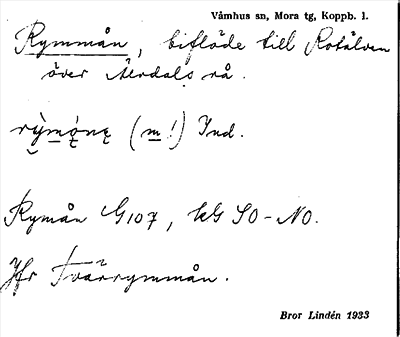 Våmhus sn, Mora tg, Koppb. l.
Rymmån, biflöde till Rotälven
över Älvdals rå.
rỳmǫ́nę (m!) Ind.
Rymån G107, kG SO-NO.
Jfr Tvärrymmån.
Bror Lindén 1933